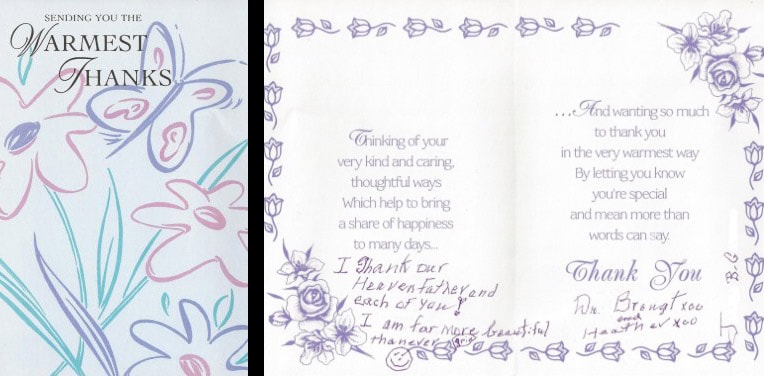 SENDING YOU THE
WARMEST
THANKS
Thinking of your
very kind and caring,
thoughtful ways
Which help to bring
a share of happiness
to many days...
I Thank our
Heavenfather, and
each of you!
I am far more beautiful
thanever
...And wanting so much
to thank you
in the very warmest way
By letting you know
you're special
and mean more than
words can say.
Thank You
Dr. Brongt xoo
and
Heather xoo
B.C